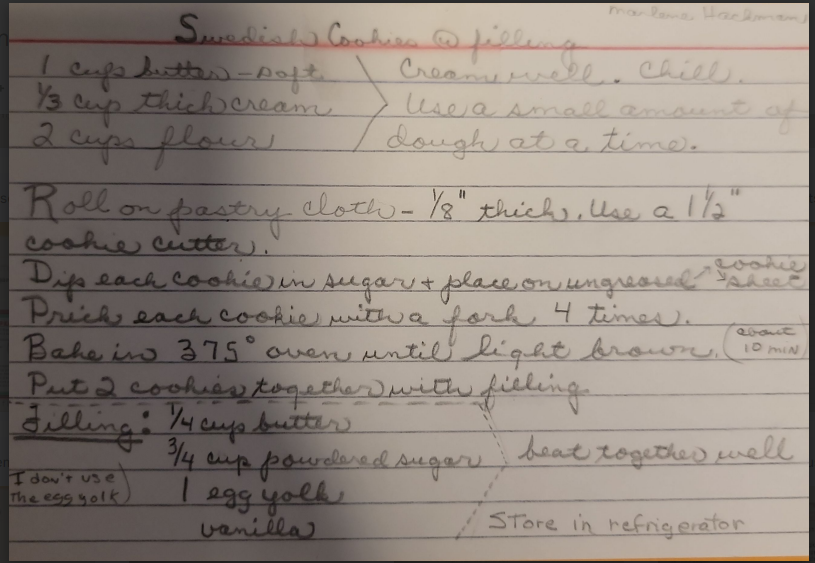 Marlene Hackman
Swedish Cookies @ filling
1 cup butter - soft
1/3 cup thick cream
2 cups flour
Cream well. Chill.
Use a small amount of
dough at a time.
Roll on pastry cloth - 1/8" thick. Use a 1 1/2"
cookie cutter.
Dip each cookie in sugar + place on ungreased cookie sheet
Prick each cookie with a fork 4 times.
Bake in 375° oven until light brown. (about 10 min)
Put 2 cookies together with filling
Filling: 1/4 cup butter
3/4 cup powdered sugar
1 egg yolk
vanilla
beat together well
I don't use
the egg yolk)
Store in refrigerator